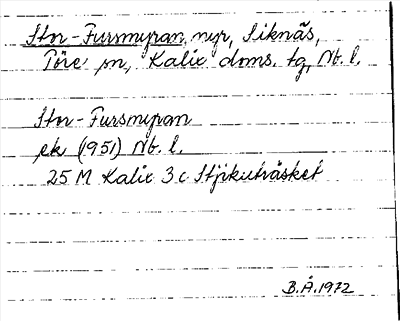 Stor-Fursmyran, myr, Siknäs,
Töre sn, Kalix doms. tg, Nb. l.
Stor-Fursmyran
ek (1951) Nb. l.
25 M Kalix 3 c Stjikuträsket
B.Å.1972